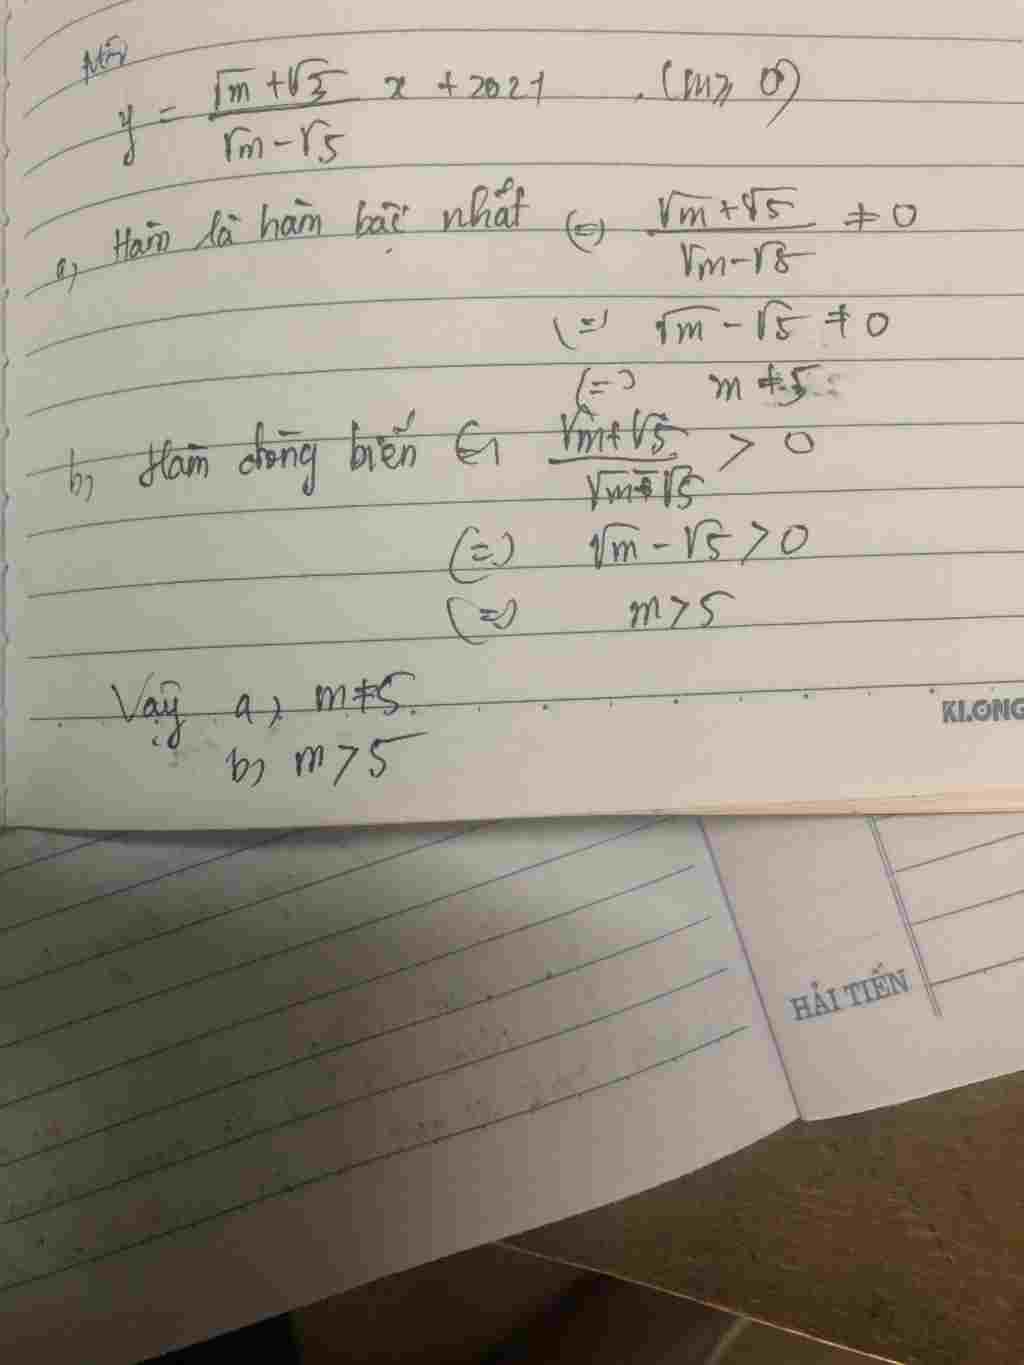 y = \frac{\sqrt{m}+\sqrt{5}}{\sqrt{m}-\sqrt{5}} x + 2021 . (m ≥ 0)
a, Hàm là hàm bậc nhất (=) \frac{\sqrt{m}+\sqrt{5}}{\sqrt{m}-\sqrt{5}} ≠ 0
(=) \sqrt{m} - \sqrt{5} ≠ 0
(=) m ≠ 5
b, Hàm đồng biến (=) \frac{\sqrt{m}+\sqrt{5}}{\sqrt{m}-\sqrt{5}} > 0
(=) \sqrt{m} - \sqrt{5} > 0
(=) m > 5
Vậy a, m ≠ 5
b, m > 5
KLONG
HẢI TIẾN